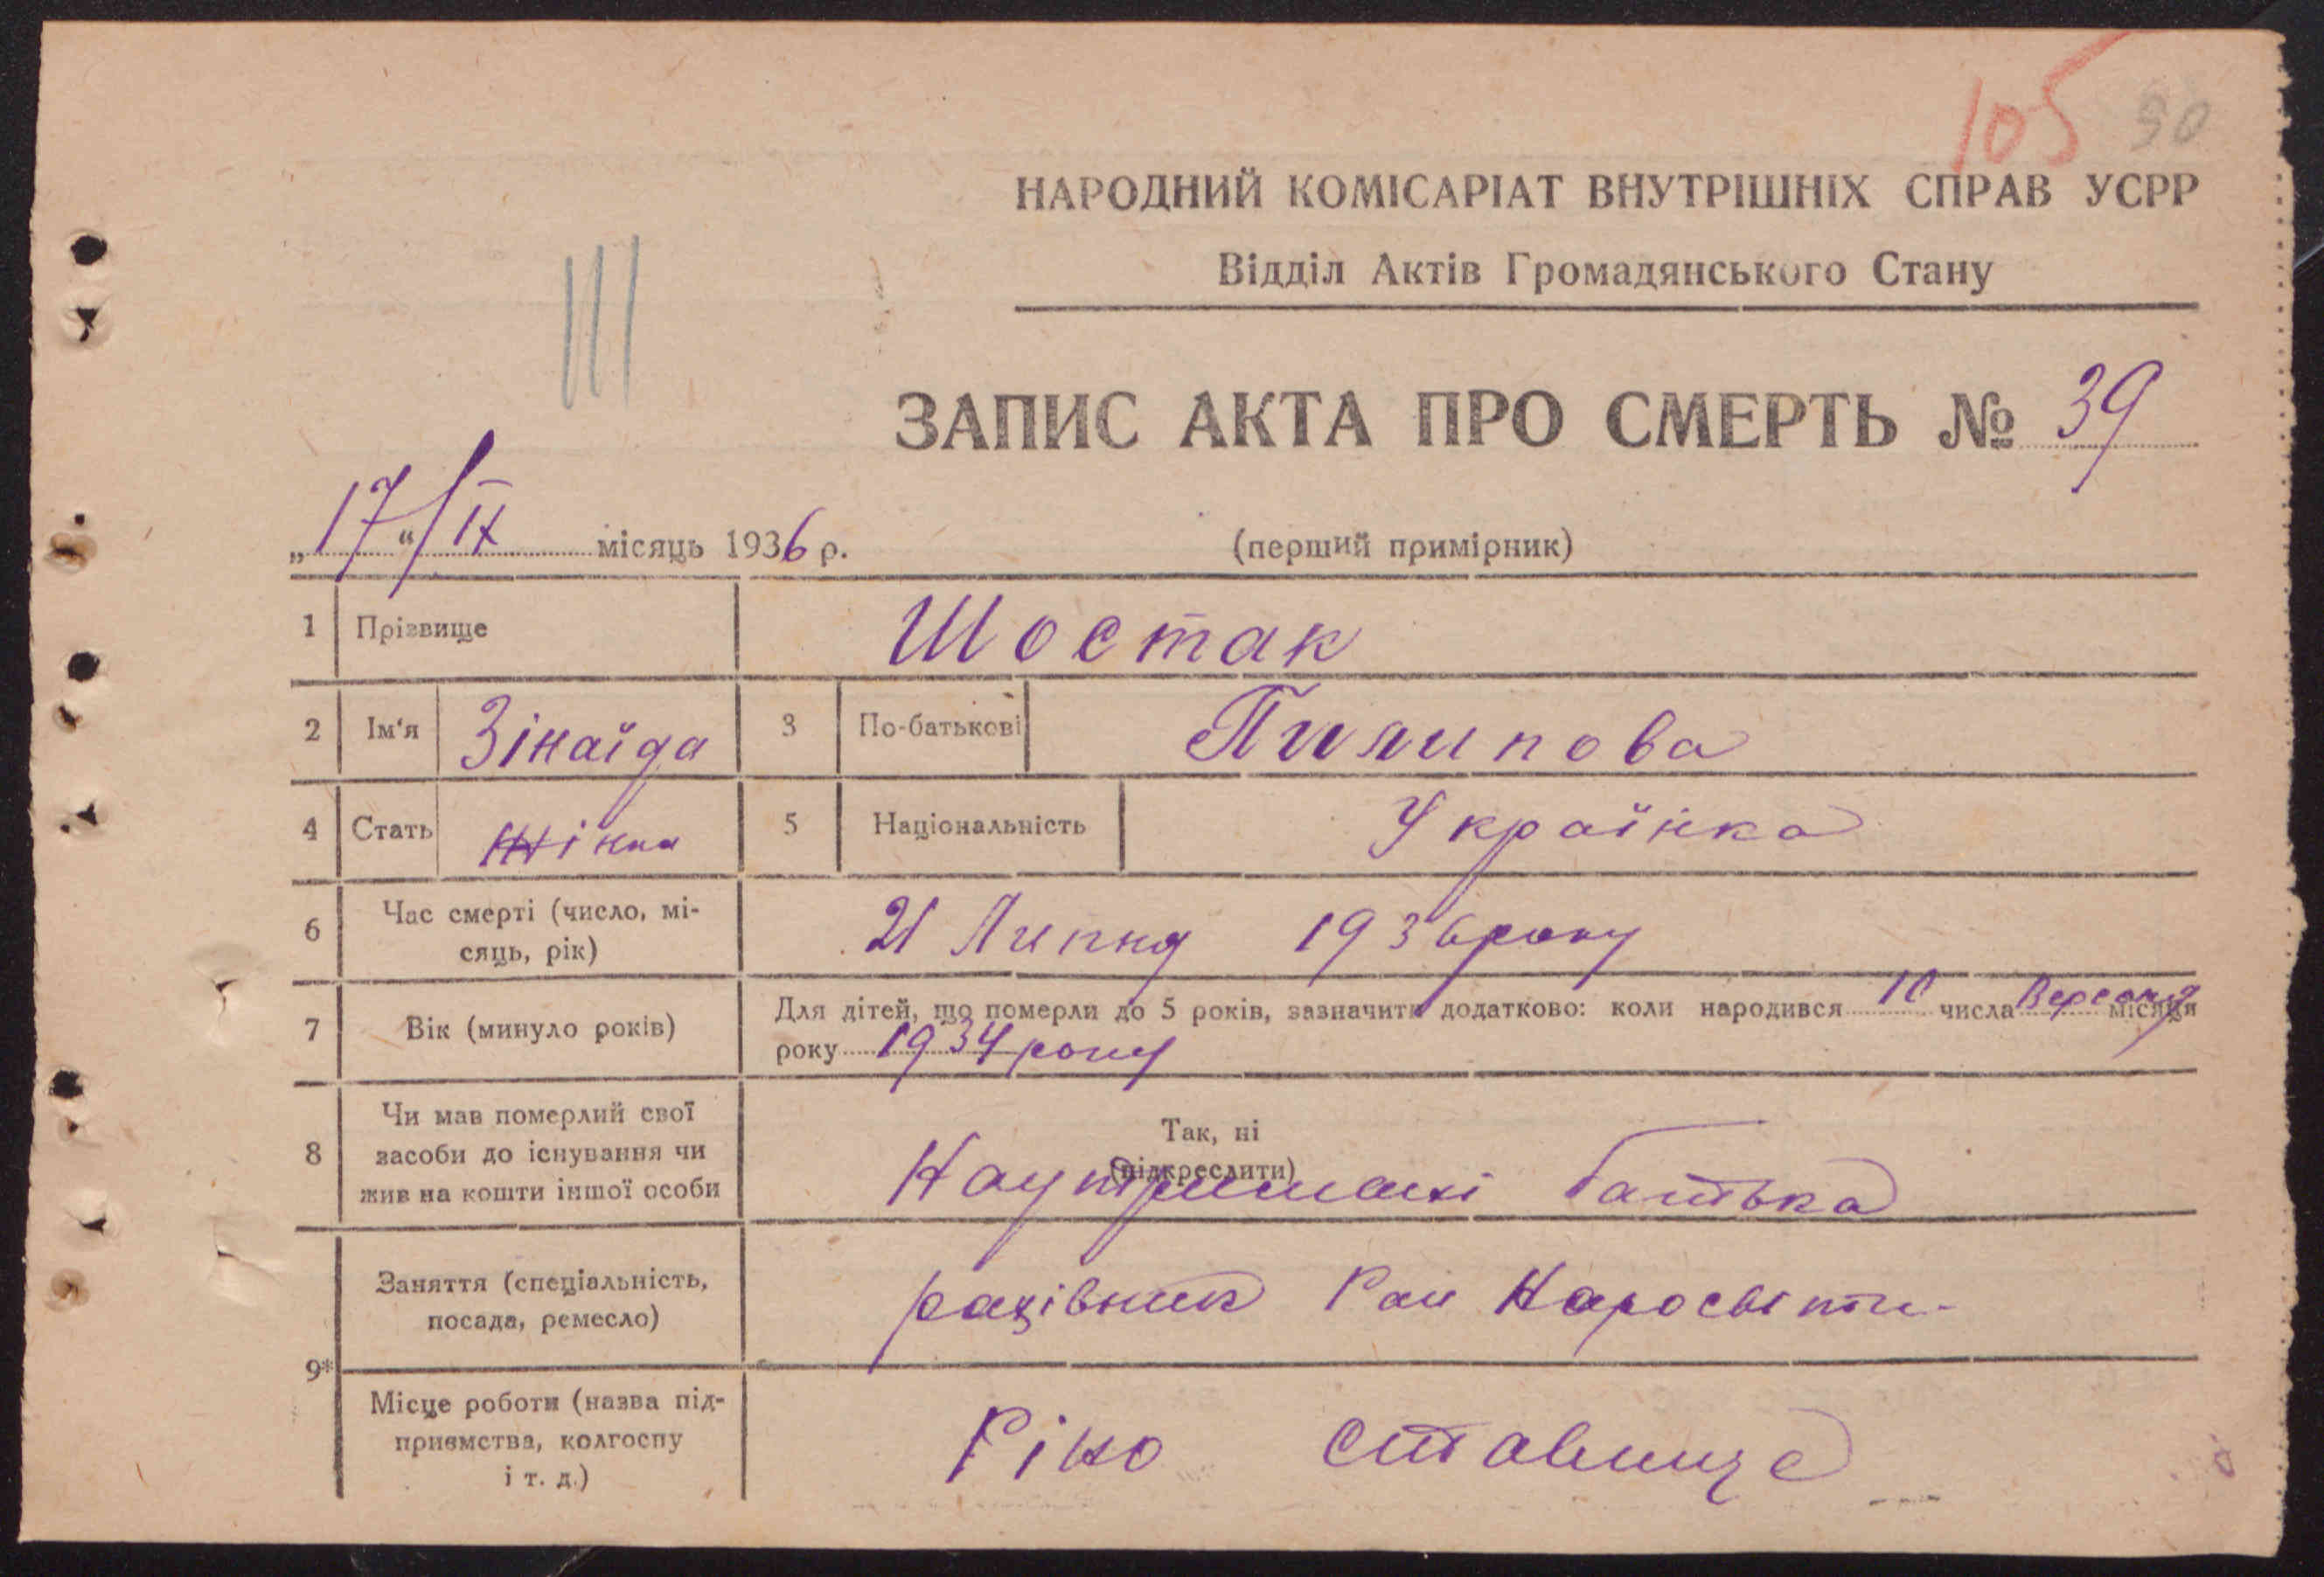 105 90
НАРОДНИЙ КОМІСАРІАТ ВНУТРІШНІХ СПРАВ УСРР
Відділ Актів Громадянського Стану
III
ЗАПИС АКТА ПРО СМЕРТЬ № 39
„17“/IX місяць 1936 р.
(перший примірник)
1 Прізвище Шостак
2 Ім'я Зінаїда 3 По-батькові Пилипова
4 Стать Жінка 5 Національність Українка
6 Час смерті (число, мі-
сяць, рік)
21 Липня 1936 року
7 Вік (минуло років)
Для дітей, що померли до 5 років, зазначити додатково: коли народився 10 числа Вересня місяця
року 1934 року
8 Чи мав померлий свої
засоби до існування чи
жив на кошти іншої особи
Так, ні
(підкреслити)
На утриманні батька
9*
Заняття (спеціальність,
посада, ремесло)
Рай Наросвіти
Місце роботи (назва під-
приємства, колгоспу
і т. д.)
Ставище